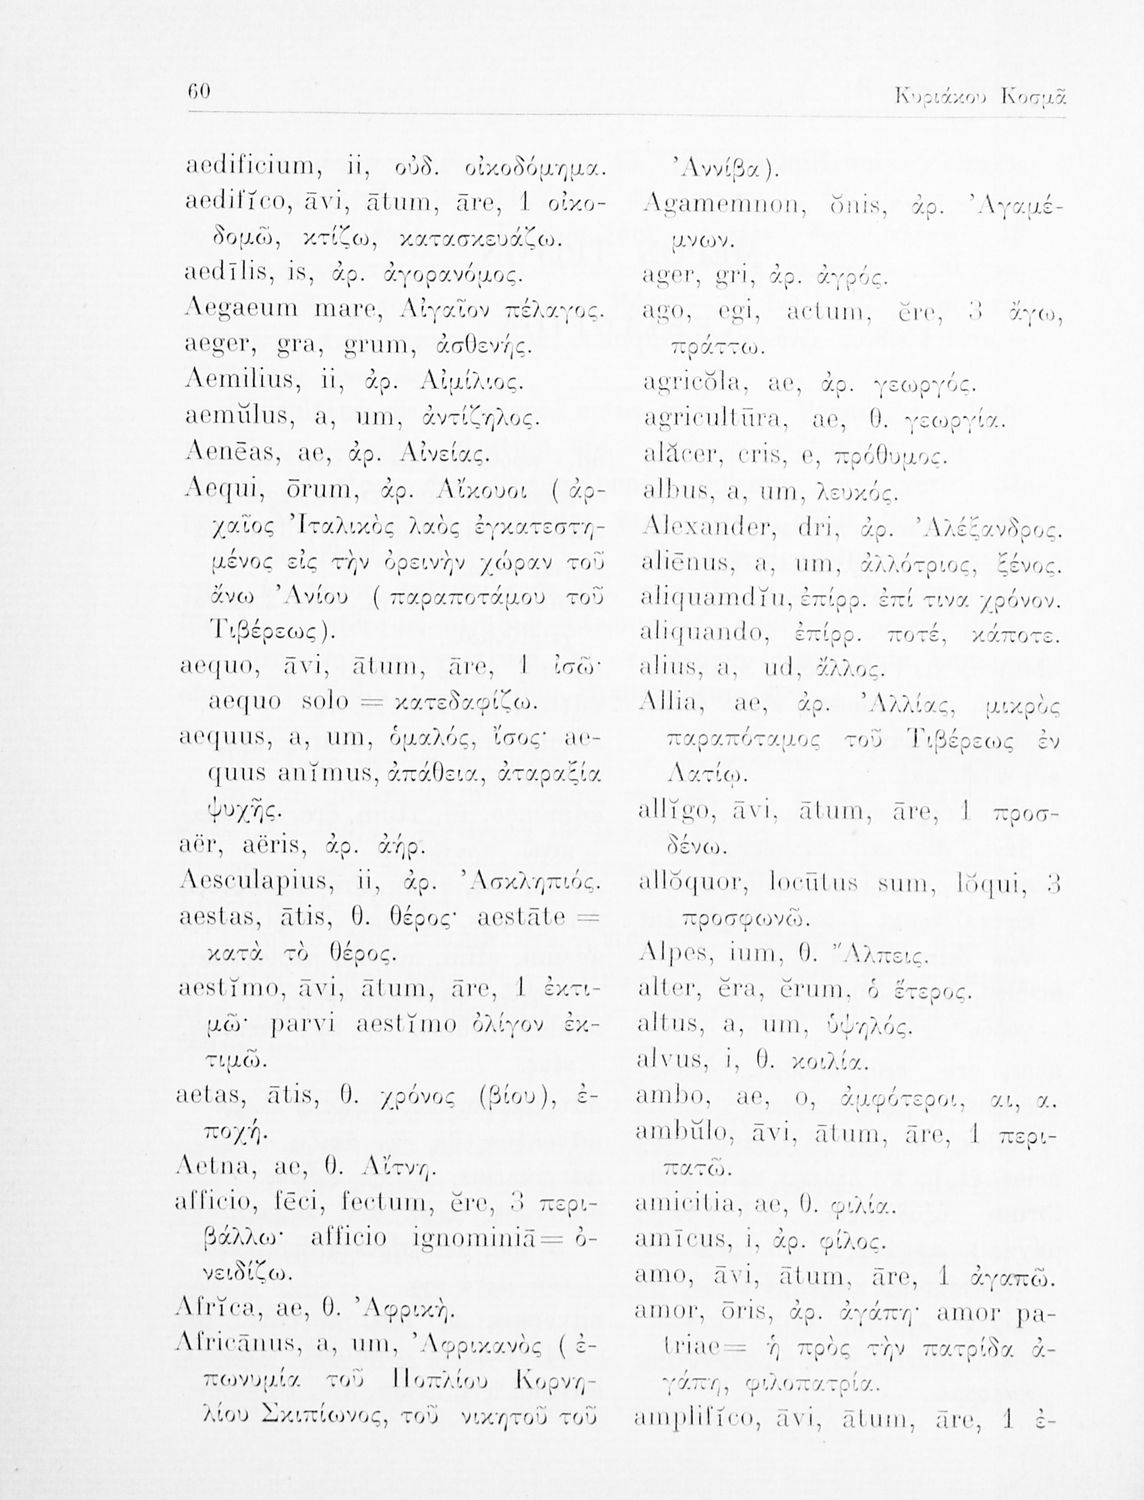 60
Κυριάκου Κοσμᾶ
aedificium, ii, οὐδ. οἰκοδόμημα.
aedifĭco, āvi, ātum, āre, 1 οἰκο-
δομῶ, κτίζω, κατασκευάζω.
aedīlis, is, ἀρ. ἀγορανόμος.
Aegaeum mare, Αἰγαῖον πέλαγος.
aeger, gra, grum, ἀσθενής.
Aemilius, ii, ἀρ. Αἰμίλιος.
aemŭlus, a, um, ἀντίζηλος.
Aenēas, ae, ἀρ. Αἰνείας.
Aequi, ōrum, ἀρ. Αἴκουοι (ἀρ-
χαῖος Ἰταλικὸς λαὸς ἐγκατεστη-
μένος εἰς τὴν ὀρεινὴν χώραν τοῦ
ἄνω Ἀνίου (παραποτάμου τοῦ
Τιβέρεως).
aequo, āvi, ātum, āre, 1 ἰσῶ·
aequo solo = κατεδαφίζω.
aequus, a, um, ὁμαλός, ἴσος· ae-
quus anĭmus, ἀπάθεια, ἀταραξία
ψυχῆς.
aër, aëris, ἀρ. ἀήρ.
Aesculapius, ii, ἀρ. Ἀσκληπιός.
aestas, ātis, θ. θέρος· aestāte =
κατὰ τὸ θέρος.
aestĭmo, āvi, ātum, āre, 1 ἐκτι-
μῶ· parvi aestĭmo ὀλίγον ἐκ-
τιμῶ.
aetas, ātis, θ. χρόνος (βίου), ἐ-
ποχή.
Aetna, ae, θ. Αἴτνη.
afficio, fēci, fectum, ĕre, 3 περι-
βάλλω· afficio ignominiā= ὀ-
νειδίζω.
Afrĭca, ae, θ. Ἀφρικὴ.
Africānus, a, um, Ἀφρικανὸς (ἐ-
πωνυμία τοῦ Ποπλίου Κορνη-
λίου Σκιπίωνος, τοῦ νικητοῦ τοῦ
Ἀννίβα).
Agamemnon, ŏnis, ἀρ. Ἀγαμέ-
μνων.
ager, gri, ἀρ. ἀγρός.
ago, egi, actum, ĕre, 3 ἄγω,
πράττω.
agricŏla, ae, ἀρ. γεωργός.
agricultūra, ae, θ. γεωργία.
alăcer, cris, e, πρόθυμος.
albus, a, um, λευκός.
Alexander, dri, ἀρ. Ἀλέξανδρος.
aliēnus, a, um, ἀλλότριος, ξένος.
aliquamdĭu, ἐπίρρ. ἐπί τινα χρόνον.
aliquando, ἐπίρρ. ποτέ, κάποτε.
alius, a, ud, ἄλλος.
Allia, ae, ἀρ. Ἀλλίας, μικρὸς
παραπόταμος τοῦ Τιβέρεως ἐν
Λατίῳ.
allĭgo, āvi, ātum, āre, 1 προσ-
δένω.
allŏquor, locūtus sum, lŏqui, 3
προσφωνῶ.
Alpes, ium, θ. Ἄλπεις.
alter, ĕra, ĕrum, ὁ ἕτερος.
altus, a, um, ὑψηλός.
alvus, i, θ. κοιλία.
ambo, ae, o, ἀμφότεροι, αι, α.
ambŭlo, āvi, ātum, āre, 1 περι-
πατῶ.
amicitia, ae, θ. φιλία.
amīcus, i, ἀρ. φίλος.
amo, āvi, ātum, āre, 1 ἀγαπῶ.
amor, ōris, ἀρ. ἀγάπη· amor pa-
triae= ἡ πρὸς τὴν πατρίδα ἀ-
γάπη, φιλοπατρία.
amplifĭco, āvi, ātum, āre, 1 ἐ-